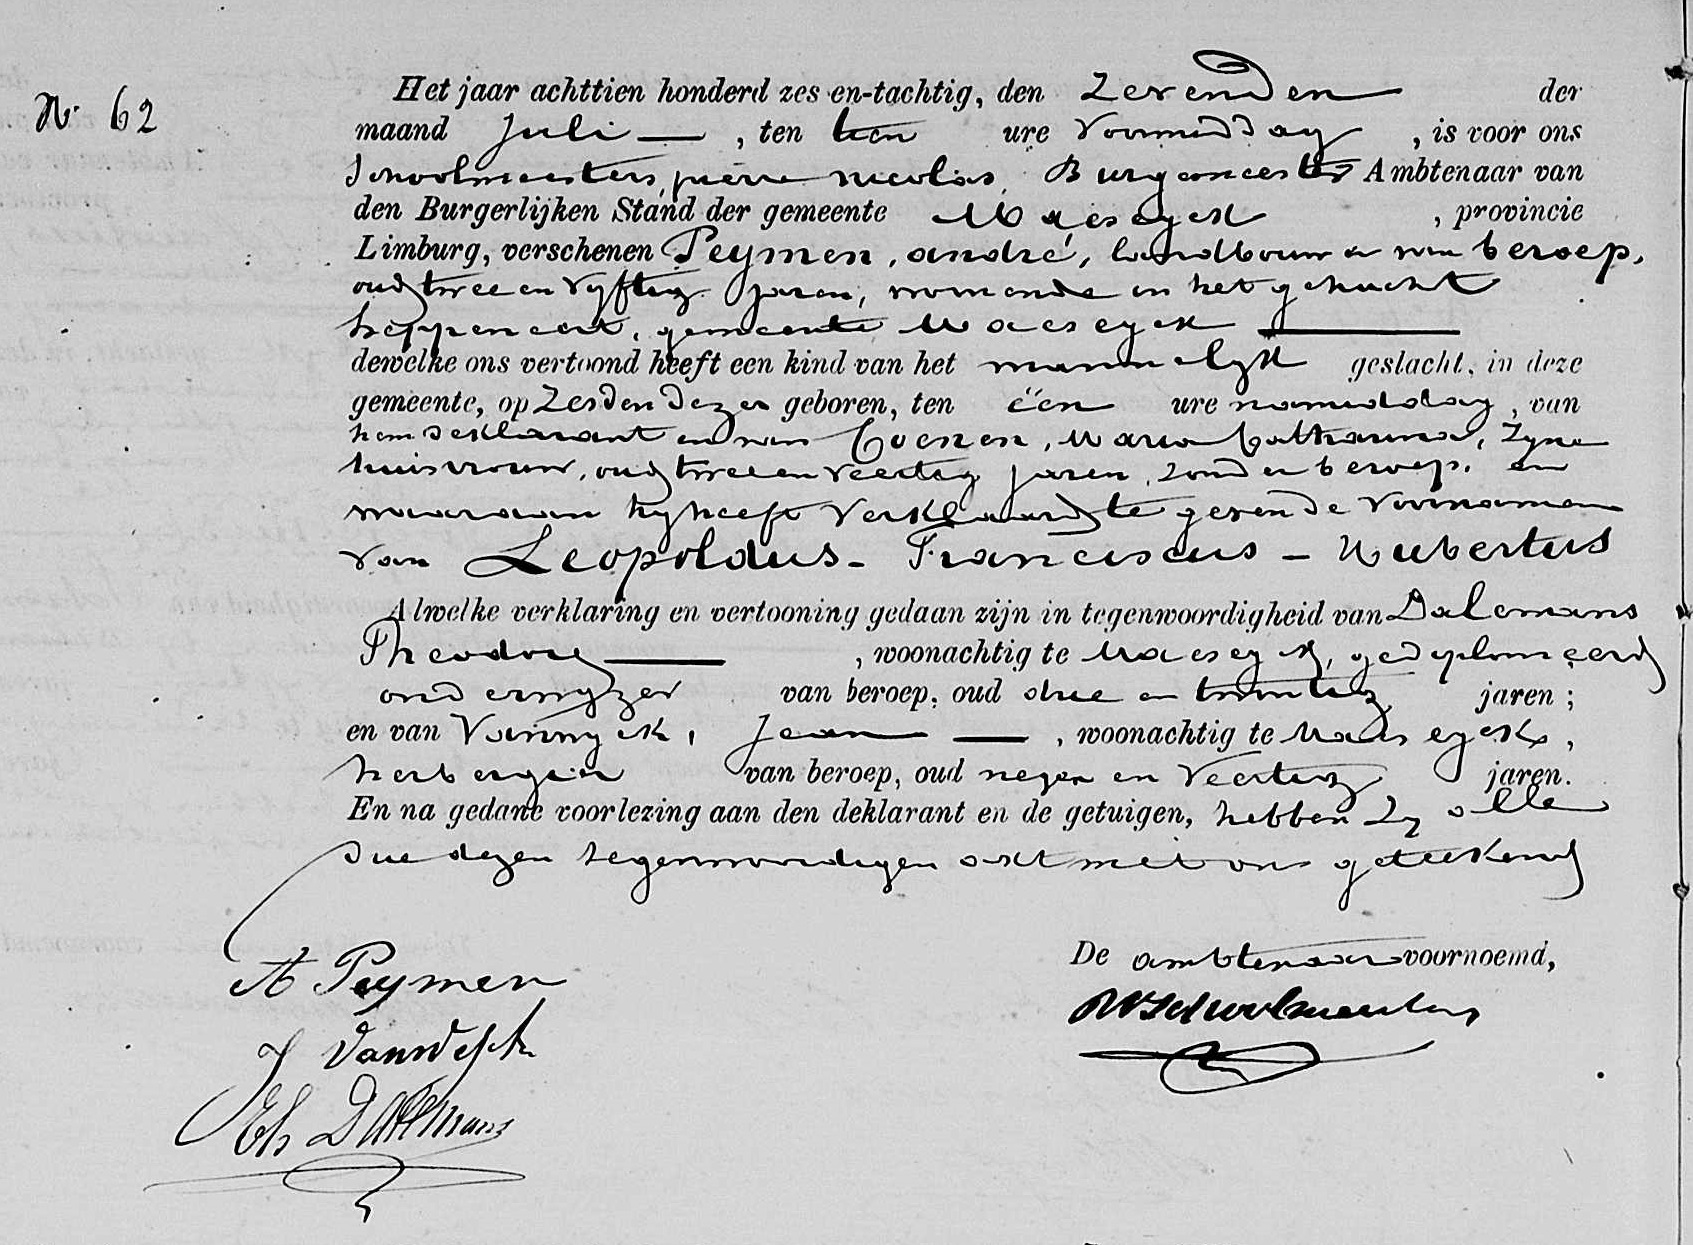 N° 62
Het jaar achttien honderd zes-en-tachtig, den zevenden der
maand Juli —, ten tien ure voormiddag, is voor ons
Schoolmeesters, pierre nicolas, Burgemeester Ambtenaar van
den Burgerlijken Stand der gemeente Maeseyck, provincie
Limburg, verschenen Peymen, andré, landbouwer van beroep,
oud twee en vyftig jaren, wonende in het gehucht
heppeneert, gemeente Maeseyck —
dewelke ons vertoond heeft een kind van het mannelyk geslacht, in deze
gemeente, op zesden dezer geboren, ten één ure namiddag, van
hem deklarant en van Coenen, Maria Catharina, zyne
huisvrouw, oud twee en veertig jaren, zonder beroep, en
waaraan hy heeft verklaard te geven de voornamen
van Leopoldus - Franciscus - Hubertus
Alwelke verklaring en vertooning gedaan zijn in tegenwoordigheid van Dalemans
Theodore —, woonachtig te Maeseyck, gediplomeerd
onderwyzer van beroep, oud drie en twintig jaren;
en van Vanwyck, Jean —, woonachtig te Maeseyck,
herbergier van beroep, oud negen en veertig jaren.
En na gedane voorlezing aan den deklarant en de getuigen, hebben zy alle
drie dezen tegenwoordigen akt met ons geteekend
De ambtenaar voornoemd,
A Peymen
PNSchoolmeesters
J Vanwyck
Th Dalemans